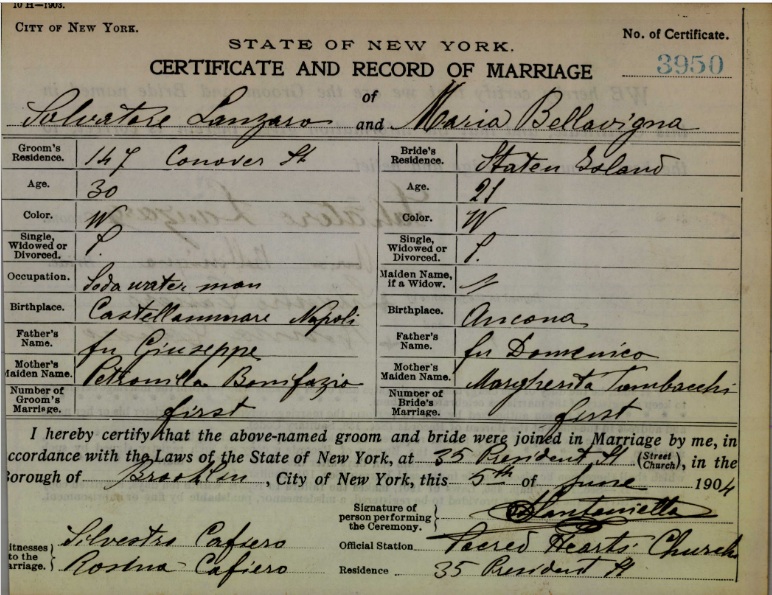 10 H—1903.
CITY OF NEW YORK.
No. of Certificate.
STATE OF NEW YORK.
CERTIFICATE AND RECORD OF MARRIAGE
3950
of
Salvatore Lanzaro and Maria Bellavigna
Groom's Residence. 147 Conover St
Bride's Residence. Staten Island
Age. 30
Age. 21
Color. W
Color. W
Single, Widowed or Divorced. S.
Single, Widowed or Divorced. S.
Occupation. Soda water man
Maiden Name, if a Widow.
Birthplace. Castellammare Napoli
Birthplace. Ancona
Father's Name. fu Giuseppe
Father's Name. fu Domenico
Mother's Maiden Name. Petronilla Bonifazio
Mother's Maiden Name. Margherita Tambacchi
Number of Groom's Marriage. first
Number of Bride's Marriage. first
I hereby certify that the above-named groom and bride were joined in Marriage by me, in
ccordance with the Laws of the State of New York, at 35 President St (Street Church), in the
Borough of Brooklen, City of New York, this 5th of June 1904
Signature of person performing the Ceremony.
itnesses to the arriage. Silvestro Cafiero
Official Station Sacred Hearts Church
Rosina Cafiero
Residence 35 President St